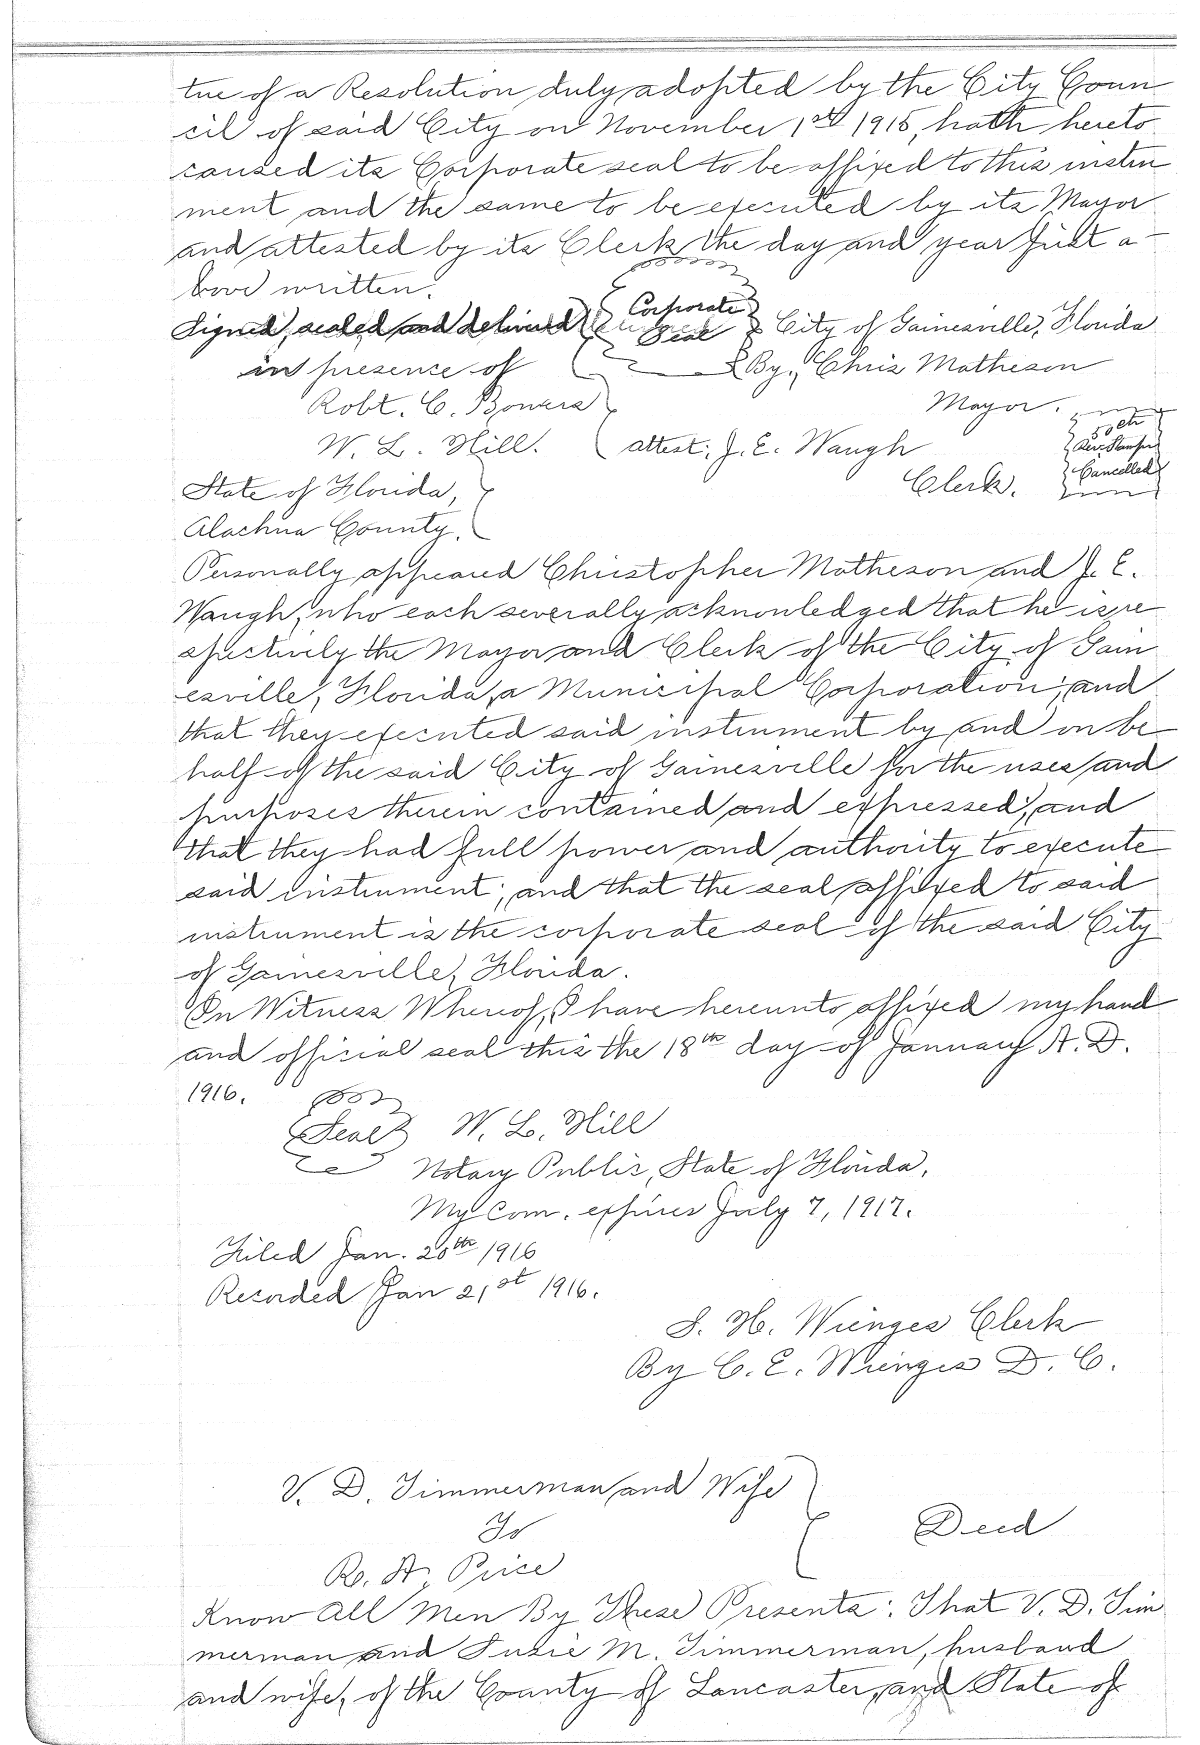 tue of a Resolution duly adopted by the City Coun
cil of said City on November 1st 1915, hath hereto
caused its Corporate seal to be affixed to this instru
ment and the same to be executed by its Mayor
and attested by its Clerk the day and year first a-
bove written.
Signed, sealed and delivered Corporate Seal City of Gainesville, Florida
in presence of By, Chris Matheson
Robt. C. Bowers Mayor.
W. L. Hill. attest; J. E. Waugh 50cts Rev. Stamps Cancelled
State of Florida, Clerk.
Alachua County.
Personally appeared Christopher Matheson and J. E.
Waugh, who each severally acknowledged that he is re
spectively the Mayor and Clerk of the City of Gain
esville, Florida, a Municipal Corporation; and
that they executed said instrument by and on be
half of the said City of Gainesville for the uses and
purposes therein contained and expressed; and
that they had full power and authority to execute
said instrument; and that the seal affixed to said
instrument is the corporate seal of the said City
of Gainesville, Florida.
In Witness Whereof, I have hereunto affixed my hand
and official seal this the 18th day of January A. D.
1916.
Seal W. L. Hill
Notary Public, State of Florida,
My Com. expires July 7, 1917.
Filed Jan. 20th 1916
Recorded Jan 21st 1916.
S. H. Wienges Clerk
By C. E. Wienges D. C.
V. D. Timmerman and Wife
To Deed
R. A. Price
Know All Men By These Presents: That V. D. Tim
merman and Susie M. Timmerman, husband
and wife, of the County of Lancaster, and State of